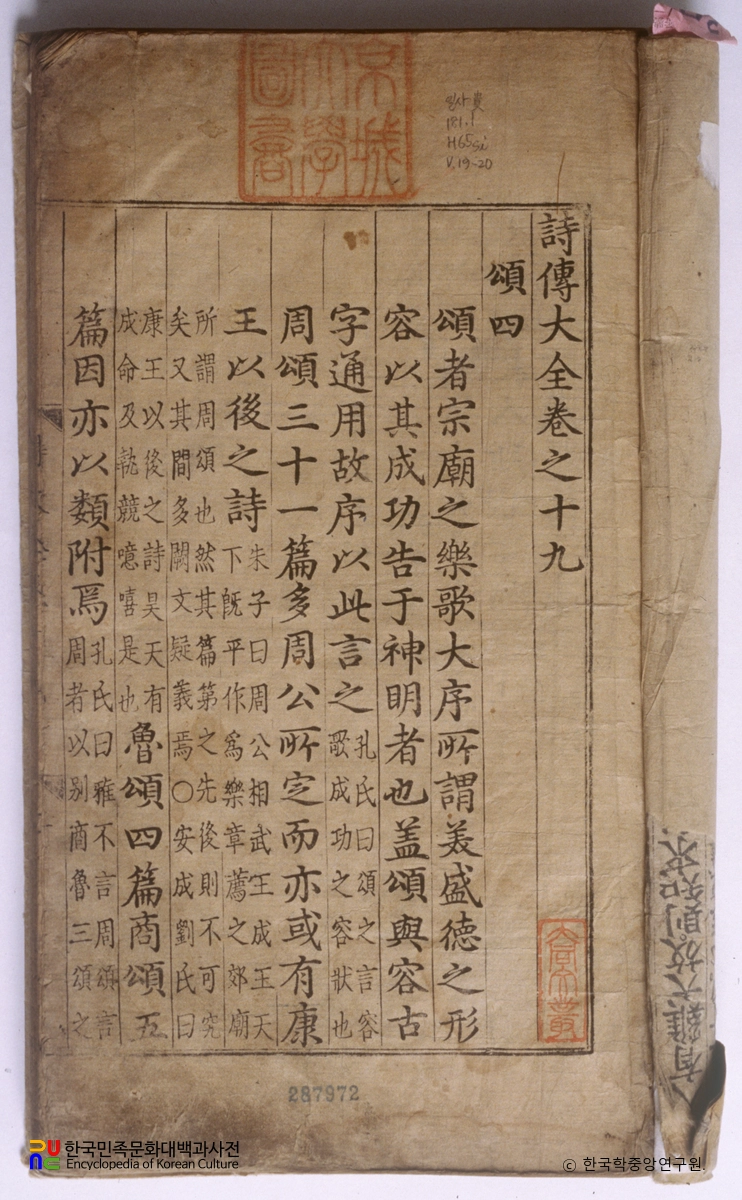 京城大學圖書
일사 貴
181.1
H65si
V.19-20
詩傳大全卷之十九
頌四
頌者宗廟之樂歌大序所謂美盛德之形
容以其成功告于神明者也盖頌與容古
字通用故序以此言之孔氏曰頌之言容歌成功之容狀也
周頌三十一篇多周公所定而亦或有康
王以後之詩朱子曰周公相武王成王天下旣平作爲樂章薦之郊廟
所謂周頌也然其篇第之先後則不可究矣又其間多闕文疑義焉○安成劉氏曰
康王以後之詩昊天有成命及執競噫嘻是也魯頌四篇商頌五
篇因亦以類附焉孔氏曰雅不言周頌言周者以别商魯三頌之
287972
한국민족문화대백과사전
Encyclopedia of Korean Culture
© 한국학중앙연구원.